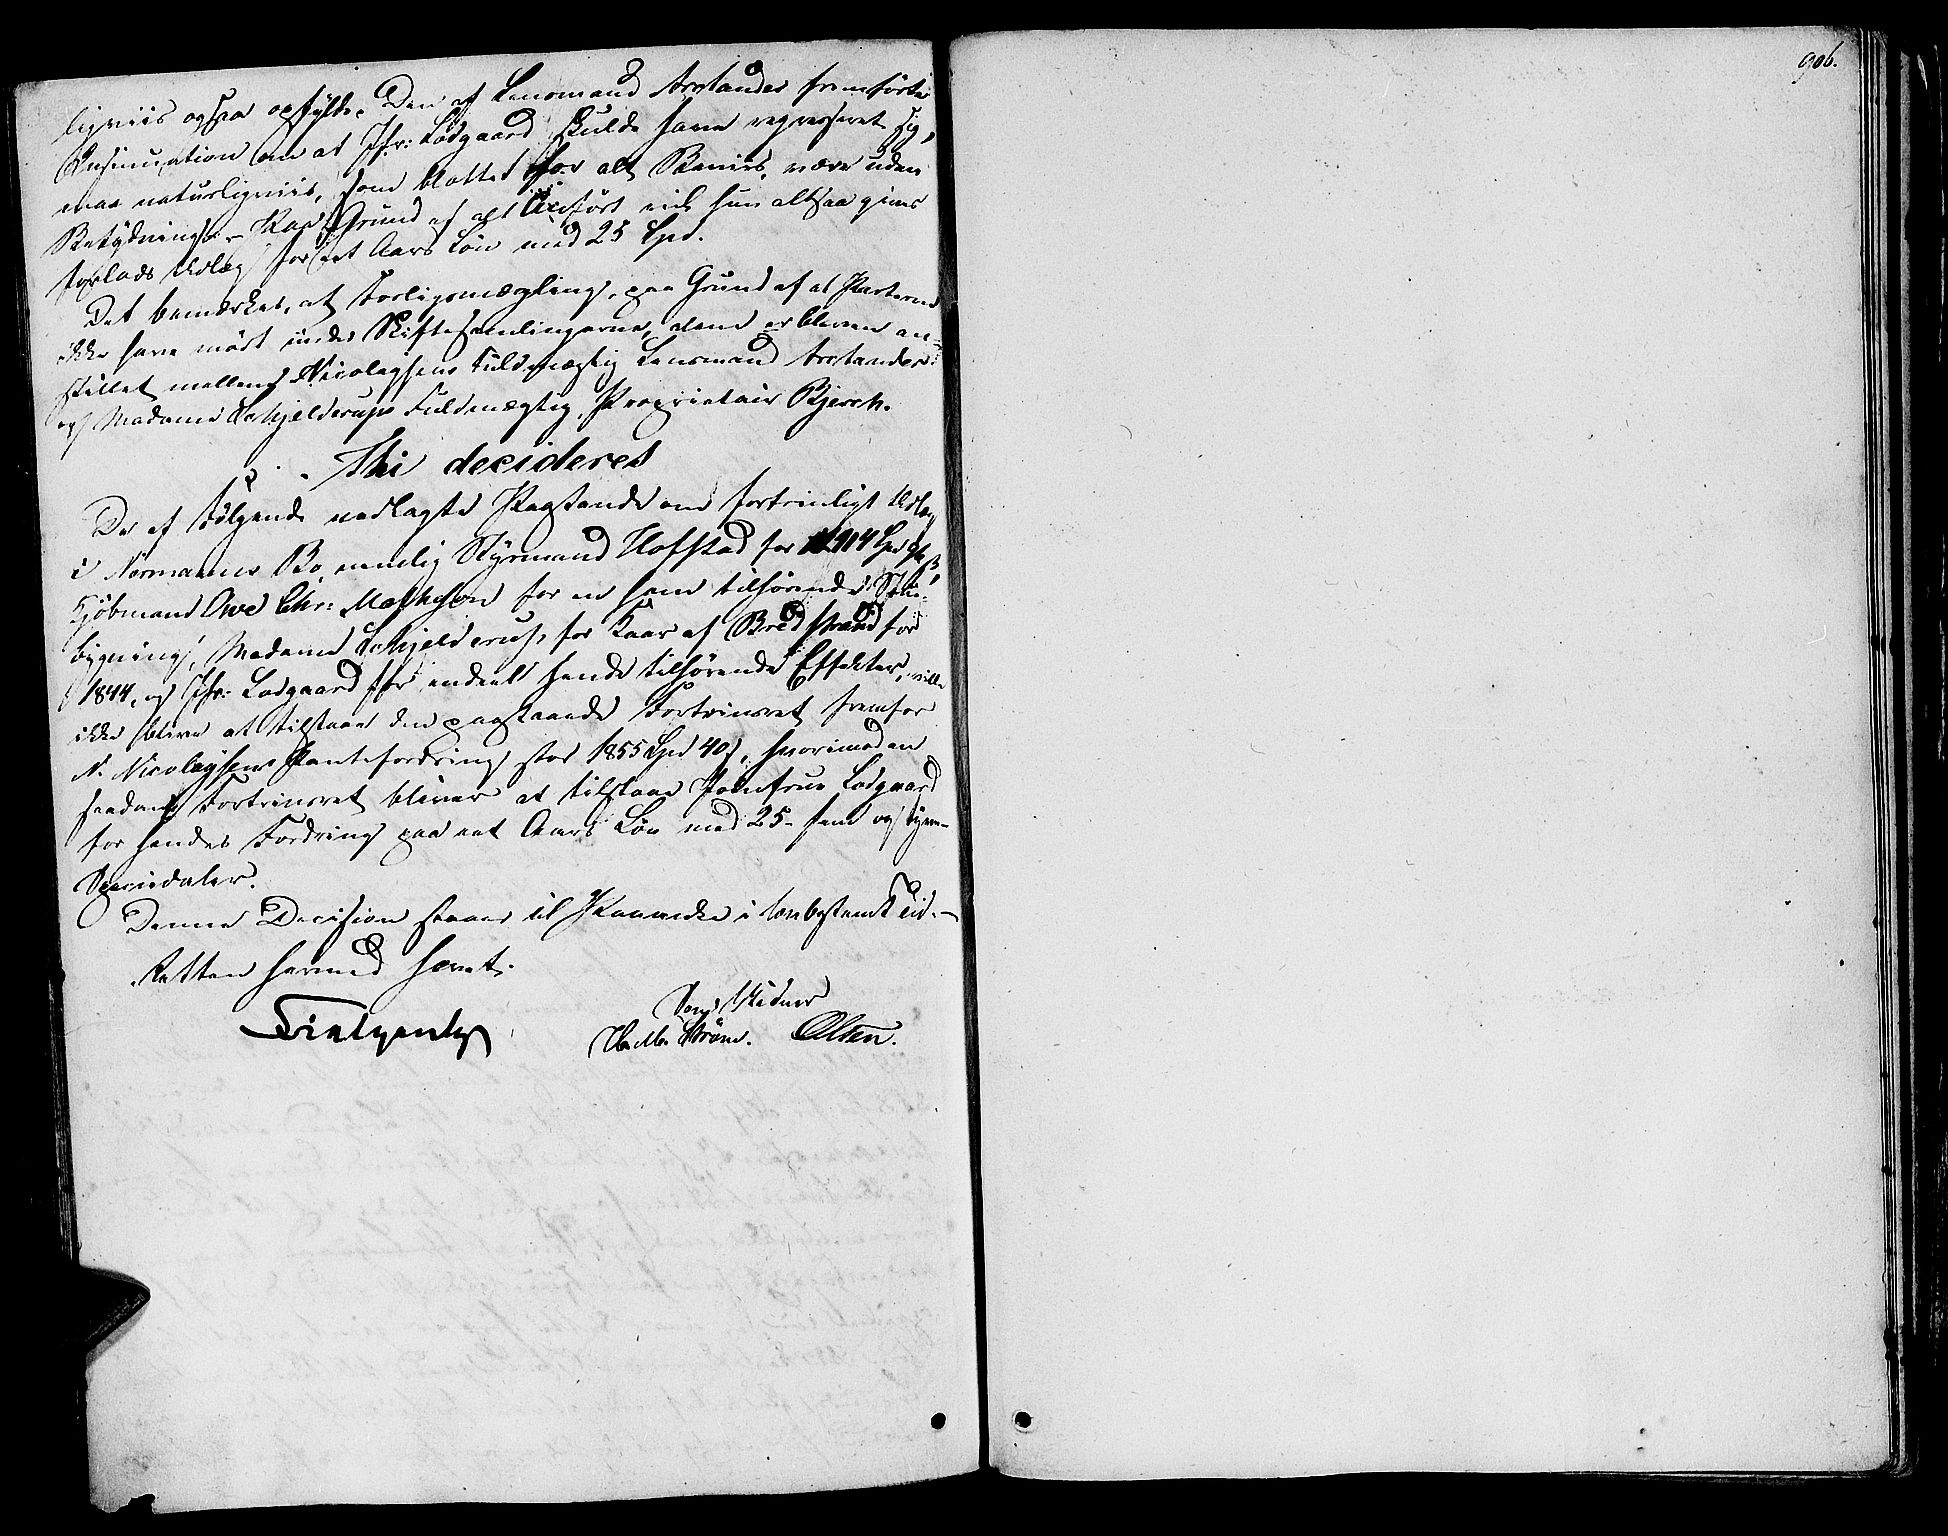 ligviis ogsaa opfyldt. Den af Lensmand Arstander fremførte
Insinuation om at Jfr: Lødgaard skulde have regresseret sig,
maa naturligviis, som blottet for alt Beviis, være uden
Betydning. – Paa Grund af alt Anført vil hun altsaa gives
forlods Udlæg for eet Aars Løn med 25 Spd.
Det bemærkes, at Forligsmægling, paa Grund af at Parterne
ikke have mødt under Skiftesamlingerne, alene er bleven an-
stillet mellem Nicolaysens Fuldmægtig Lensmand Arstander
og Madame Schjelderups Fuldmægtig, Proprietair Bjerch.
Thi decideres
De af Følgende nedlagte Paastande om fortrinligt Udlæg
i Normanns Bo, nemlig Styrmand Hofstad for 914 Spd
Kjøbmand Ove Chr: Matheson for en ham tilhørende
bygning, Madame Schjelderup, for Kaar af Bredstrand for
1844, og Jfr: Lødgaard for endeel hende tilhørende Effekter, ville
ikke blive at tilstaae den paastaaede Fortrinsret fremfor
N. Nicolaysens Pantefordring stor 1855 Spd 40 s, hvorimod en
saadan Fortrinsret bliver at tilstaae Jomfrue Lødgaard
for hendes Fordring paa eet Aars Løn med 25 – fem og tyve –
Speciedaler.
Denne Decision staaer til Paaanke i lovbestemt Tid. –
Retten hermed hævet.
Som Vidner
Strøm. Olsen.
906.